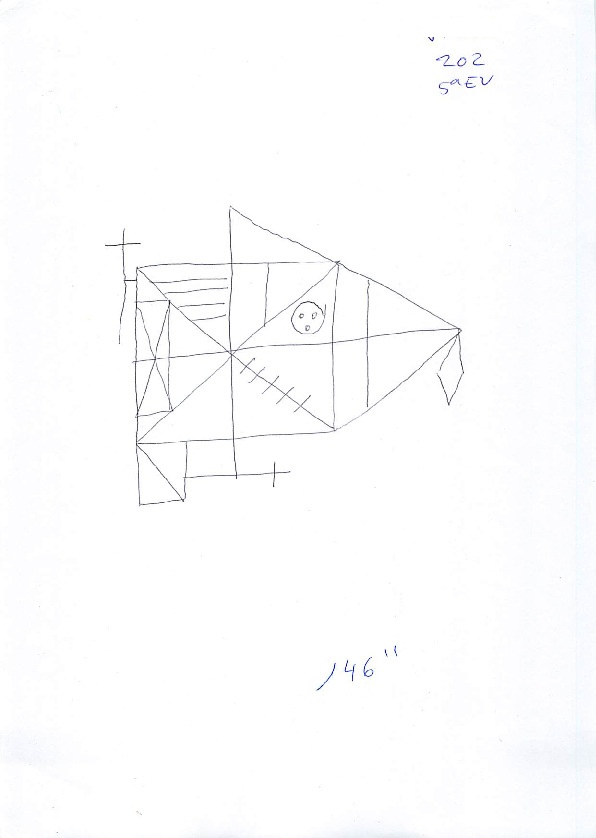 202
5ª EV
146"